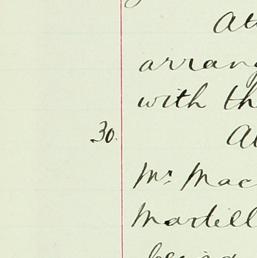 At
arrang
with th
30.
Mr. Mac
Martell